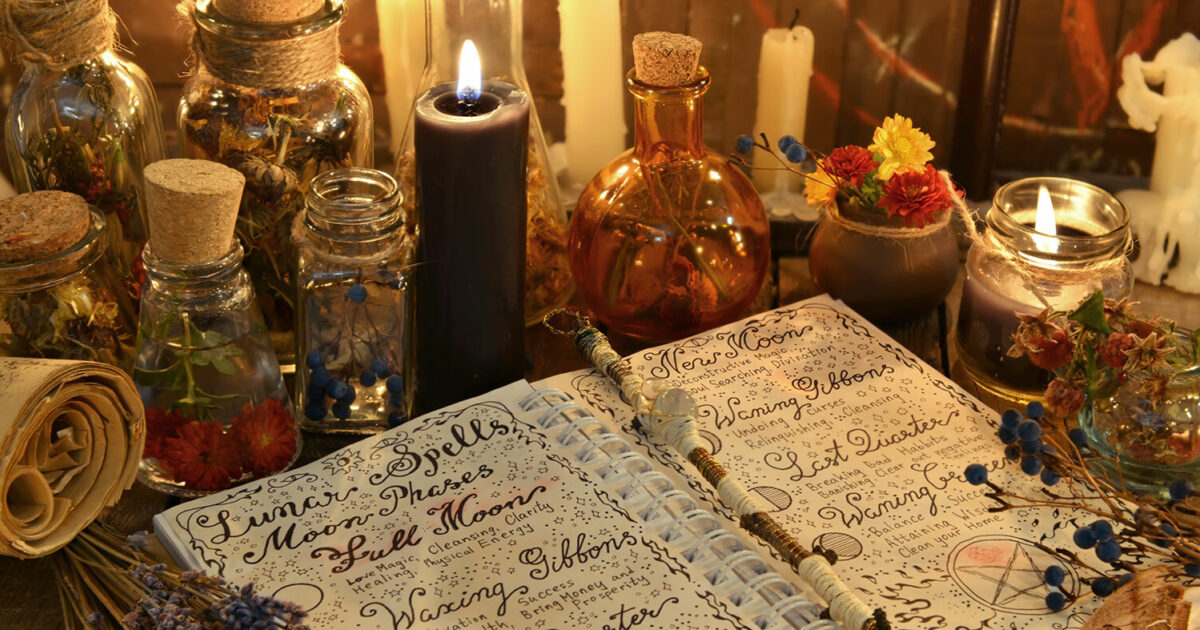 Lunar Spells
Moon Phases
Full Moon
Love Magic Cleansing, Clarity
Healing, Physical Energy
Waxing Gibbons
Success
Bring Money and
Prosperity
New Moon
Deconstructive Magic
Soul Searching
Waning Gibbons
Undoing Curses
Relinquishing Cleansing
Last Quarter
Breaking Bad Habits
Banishing Clear Negative
Waning
Balance Success
Attaining
Clean your Home